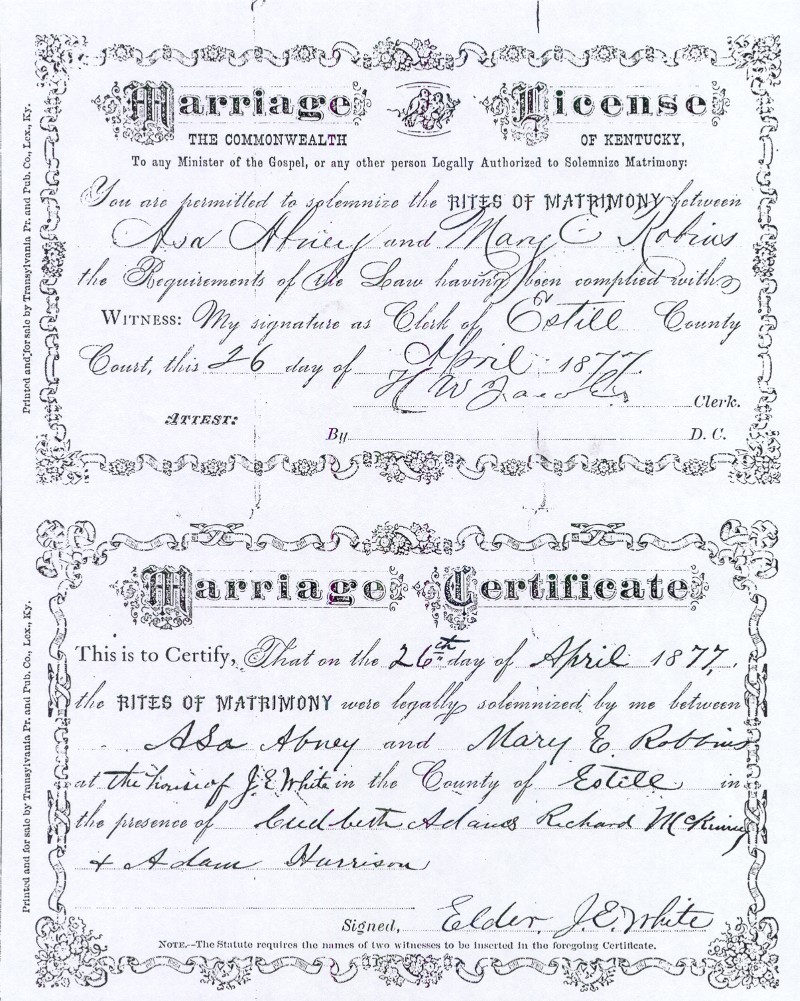 Marriage License
THE COMMONWEALTH OF KENTUCKY,
To any Minister of the Gospel, or any other person Legally Authorized to Solemnize Matrimony:
You are permitted to solemnize the RITES OF MATRIMONY between
Asa Abney and Mary E Robins
the Requirements of the Law having been complied with
WITNESS: My signature as Clerk of Estill County
Court, this 26 day of April 1877.
H W Jacobs Clerk.
ATTEST:
By D. C.
Printed and for sale by Transylvania Pr. and Pub. Co., Lex., Ky.
Marriage Certificate
This is to Certify, That on the 26th day of April 1877,
the RITES OF MATRIMONY were legally solemnized by me between
Asa Abney and Mary E Robbins
at the house of J. E White in the County of Estill in
the presence of Cudbirth Adams Richard McKinney
+ Adam Harrison
Signed, Elder. J. E. White
NOTE.--The Statute requires the names of two witnesses to be inserted in the foregoing Certificate.
Printed and for sale by Transylvania Pr. and Pub. Co., Lex., Ky.